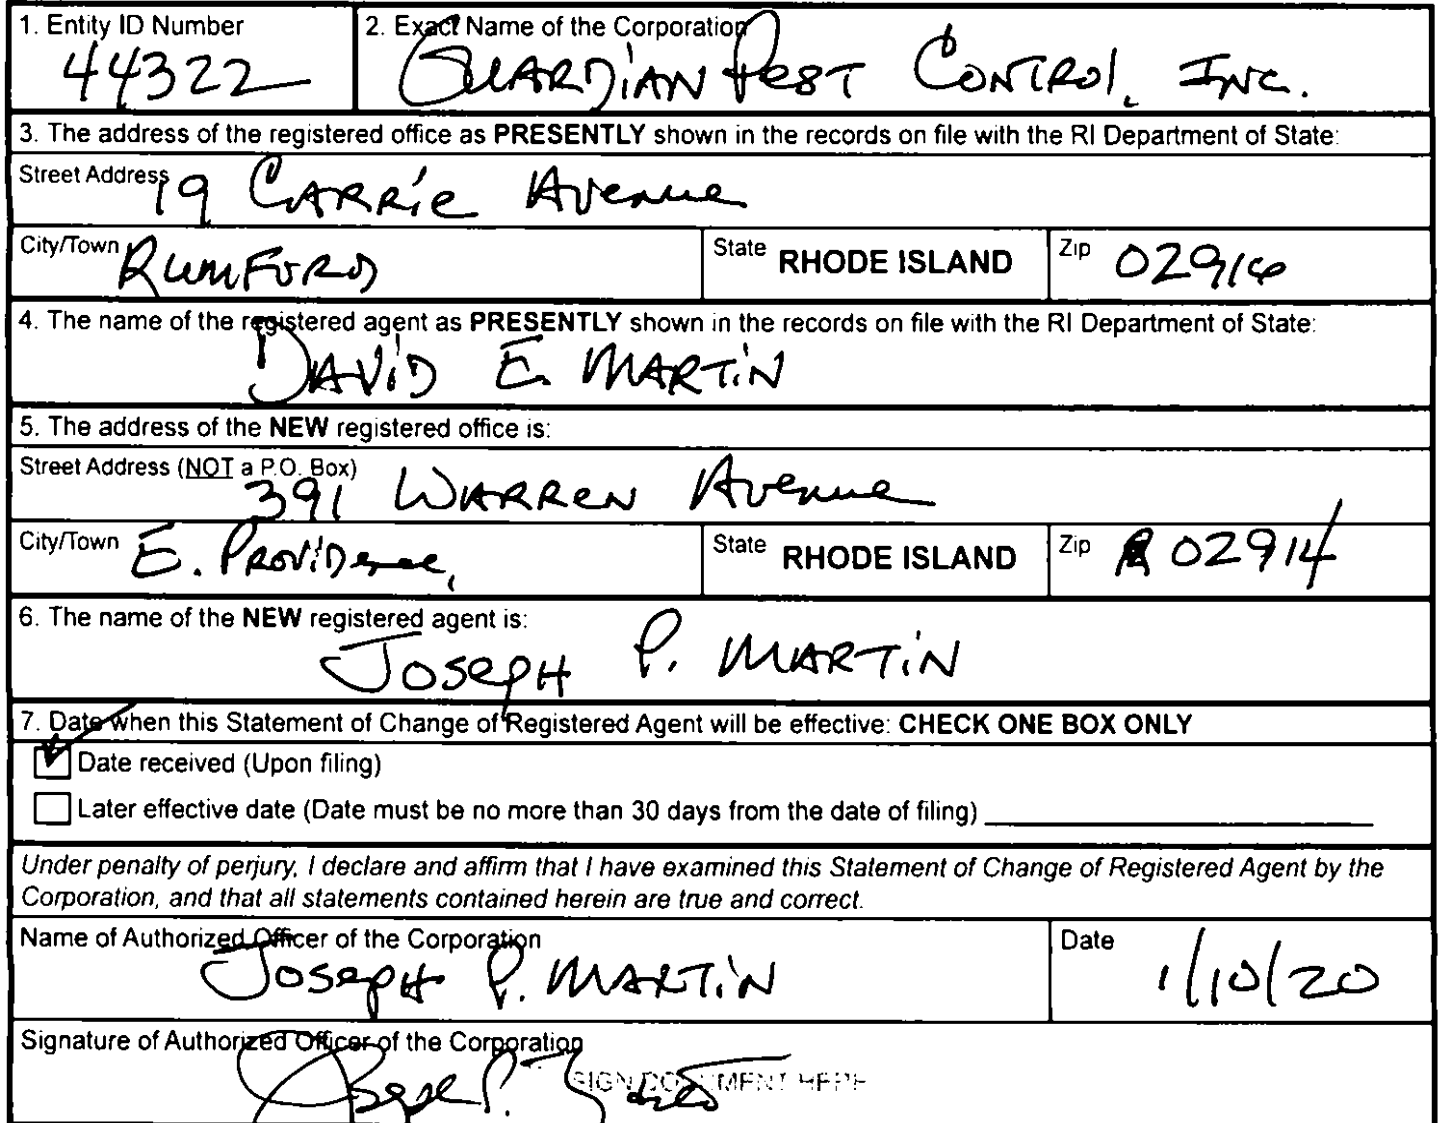 1. Entity ID Number
44322
2. Exact Name of the Corporation
Guardian Pest Control, Inc.
3. The address of the registered office as PRESENTLY shown in the records on file with the RI Department of State:
Street Address 19 Carrie Avenue
City/Town Rumford State RHODE ISLAND Zip 02916
4. The name of the registered agent as PRESENTLY shown in the records on file with the RI Department of State:
David E. Martin
5. The address of the NEW registered office is:
Street Address (NOT a P.O. Box)
391 Warren Avenue
City/Town E. Providence, State RHODE ISLAND Zip 02914
6. The name of the NEW registered agent is:
Joseph P. Martin
7. Date when this Statement of Change of Registered Agent will be effective: CHECK ONE BOX ONLY
Date received (Upon filing)
Later effective date (Date must be no more than 30 days from the date of filing)
Under penalty of perjury, I declare and affirm that I have examined this Statement of Change of Registered Agent by the
Corporation, and that all statements contained herein are true and correct.
Name of Authorized Officer of the Corporation
Joseph P. Martin
Date
1/10/20
Signature of Authorized Officer of the Corporation
SIGN DOCUMENT HERE